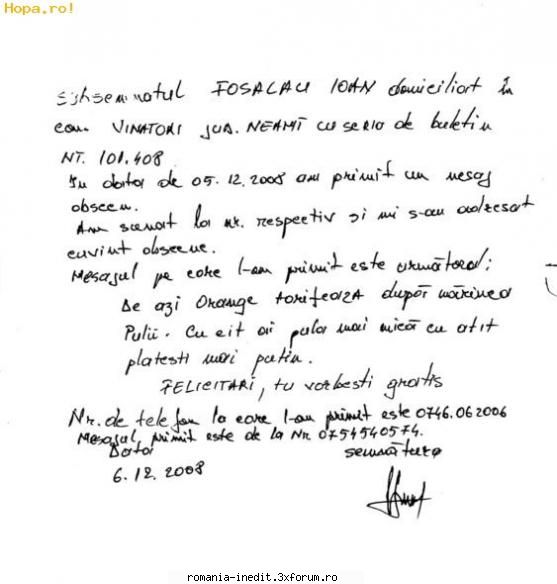 Hopa.ro!
Subsemnatul FOSALAU IOAN domiciliat în
com. VINATORI JUD. NEAMT cu seria de buletin
NT. 101.408
In data de 05.12.2008 am primit un mesaj
obscen.
Am sunat la nr. respectiv și mi s-au adresat
cuvinte obscene.
Mesajul pe care l-am primit este următorul:
De azi Orange tarifeaza după mărimea
Pulii. Cu cit ai pula mai mică cu atit
platesti mai putin.
FELICITARI, tu vorbesti gratis
Nr. de telefon la care l-am primit este 0746.062006
Mesajul primit este de la Nr. 0754540574.
Data semnătura
6.12.2008
romania-inedit.3xforum.ro